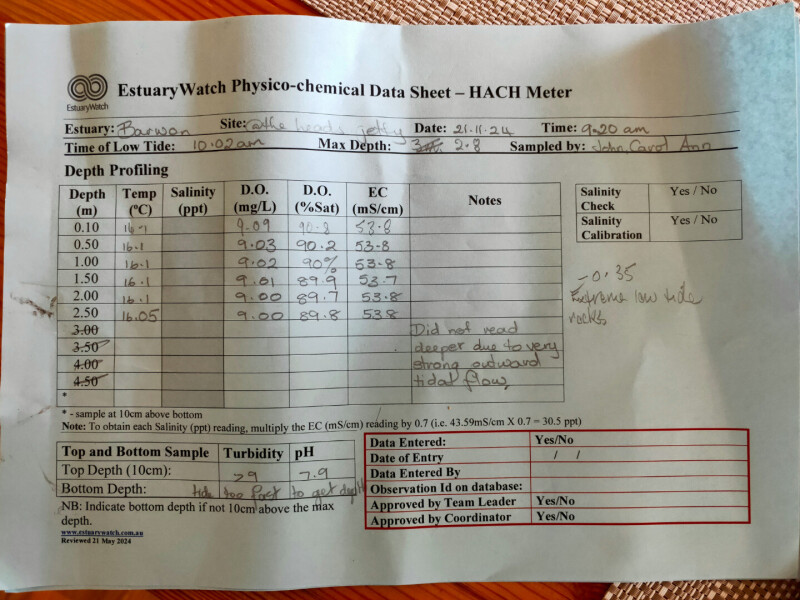 EstuaryWatch
EstuaryWatch Physico-chemical Data Sheet – HACH Meter
Estuary: Barwon Site: @the heads jetty Date: 21.11.24 Time: 9.20 am
Time of Low Tide: 10.02am Max Depth: 2.8 Sampled by: John, Carol Ann
Depth Profiling
Depth (m) Temp (ºC) Salinity (ppt) D.O. (mg/L) D.O. (%Sat) EC (mS/cm) Notes
0.10 16.1 9.09 90.8 53.8
0.50 16.1 9.03 90.2 53.8
1.00 16.1 9.02 90% 53.8
1.50 16.1 9.01 89.9 53.7
2.00 16.1 9.00 89.7 53.8
2.50 16.05 9.00 89.8 53.8
3.00 Did not read
3.50 deeper due to very
4.00 strong outward
4.50 tidal flow
*
Salinity Check Yes / No
Salinity Calibration Yes / No
-0.35
Extreme low tide
rocks
* - sample at 10cm above bottom
Note: To obtain each Salinity (ppt) reading, multiply the EC (mS/cm) reading by 0.7 (i.e. 43.59mS/cm X 0.7 = 30.5 ppt)
Top and Bottom Sample Turbidity pH
Top Depth (10cm): >9 7.9
Bottom Depth: tide too fast to get depth
NB: Indicate bottom depth if not 10cm above the max
depth.
www.estuarywatch.com.au
Reviewed 21 May 2024
Data Entered: Yes/No
Date of Entry / /
Data Entered By
Observation Id on database:
Approved by Team Leader Yes/No
Approved by Coordinator Yes/No